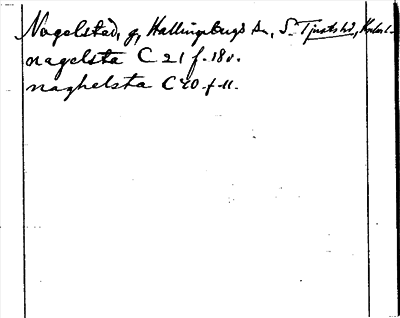 Nagelstad, g, Hallingebergs sn, S. Tjusts hd,
nagelsta C 21 f. 18v.
naghelsta C 40 f. 11.